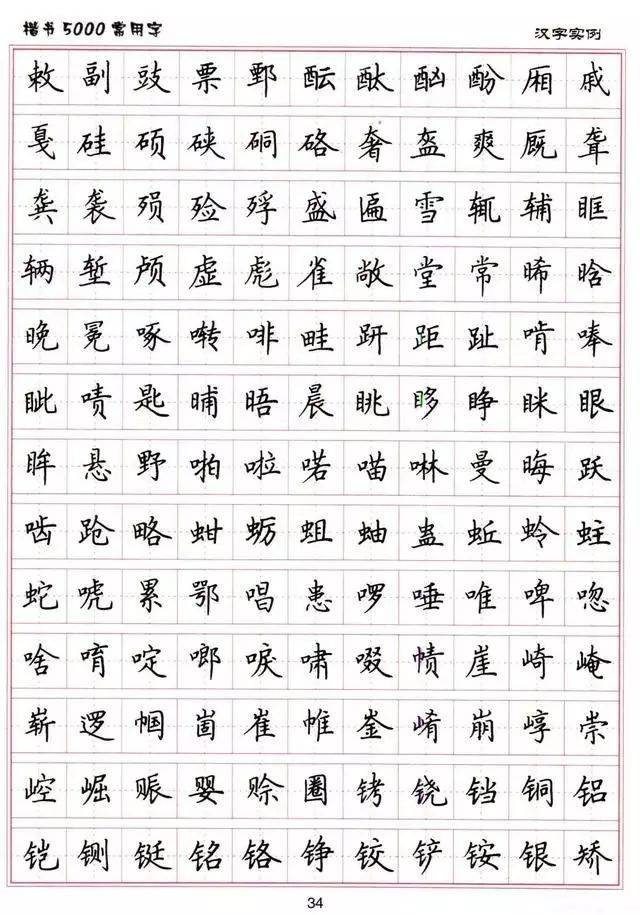 楷书5000常用字 汉字实例
敕副豉票鄄酝酞酗酚厢戚
戛硅硕硖硐硌奢盔爽厩聋
龚袭殒殓殍盛匾雪辄辅眶
辆堑颅虚彪雀敞堂常晞晗
晚冕啄啭啡畦趼距趾啃唪
眦啧匙晡晤晨眺眵睁眯眼
眸悬野啪啦喏喵啉曼晦跃
啮跄略蚶蛎蛆蚰蛊蚯蛉蛀
蛇唬累鄂唱患啰唾唯啤唿
啥唷啶啷唳啸啜帻崖崎崦
崭逻帼崮崔帷崟崤崩崞崇
崆崛赈婴赊圈铐铙铛铜铝
铠铡铤铭铬铮铰铲铵银矫
34